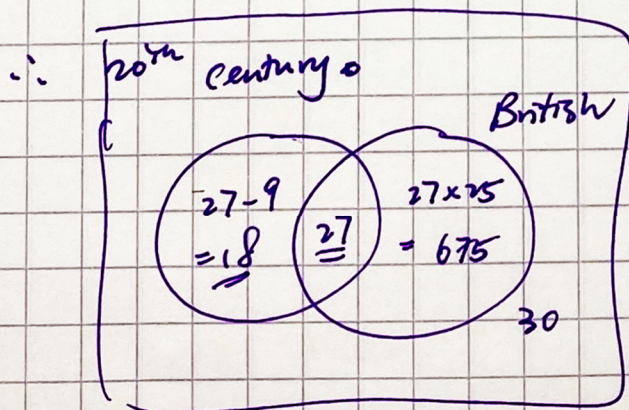 ∴ 20th century.
British
27-9
=18
27
27×25
= 675
30